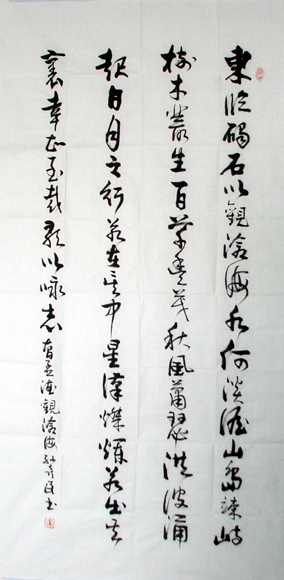 東臨碣石以觀滄海水何淡澹山島竦峙
樹木叢生百草豐茂秋風蕭瑟洪波涌
起日月之行若在其中星漢燦爛若出其
裏幸甚至哉歌以咏志 曹孟德觀滄海 書